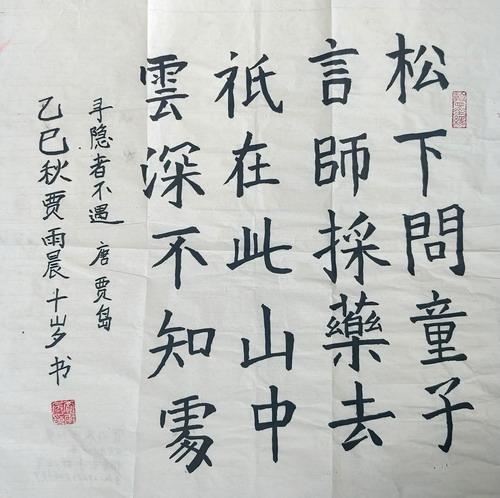 松下問童子
言師採藥去
祇在此山中
雲深不知處
寻隐者不遇 唐 贾岛
乙巳秋贾雨晨十岁书